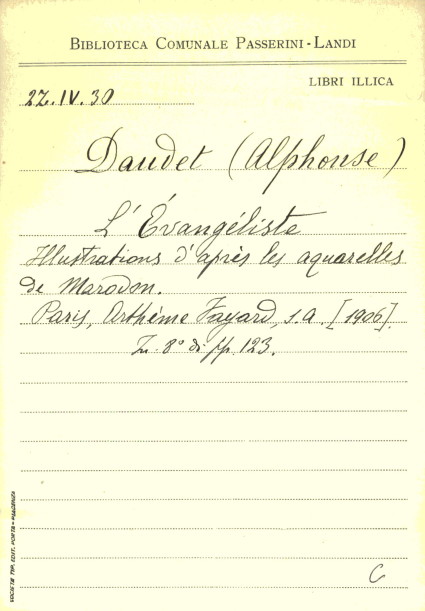 BIBLIOTECA COMUNALE PASSERINI-LANDI
LIBRI ILLICA
22.IV.30
Daudet (Alphonse)
L'Évangéliste
Illustrations d'après les aquarelles
de Marodon.
Paris, Arthème Fayard, s.a. [1906].
In-8° di pp. 123.
C
SOCIETÀ TIP. EDIT. PORTA - PIACENZA